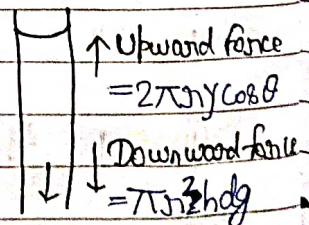 Upward force
=2πrγcosθ
Downward force
=πr²hdg